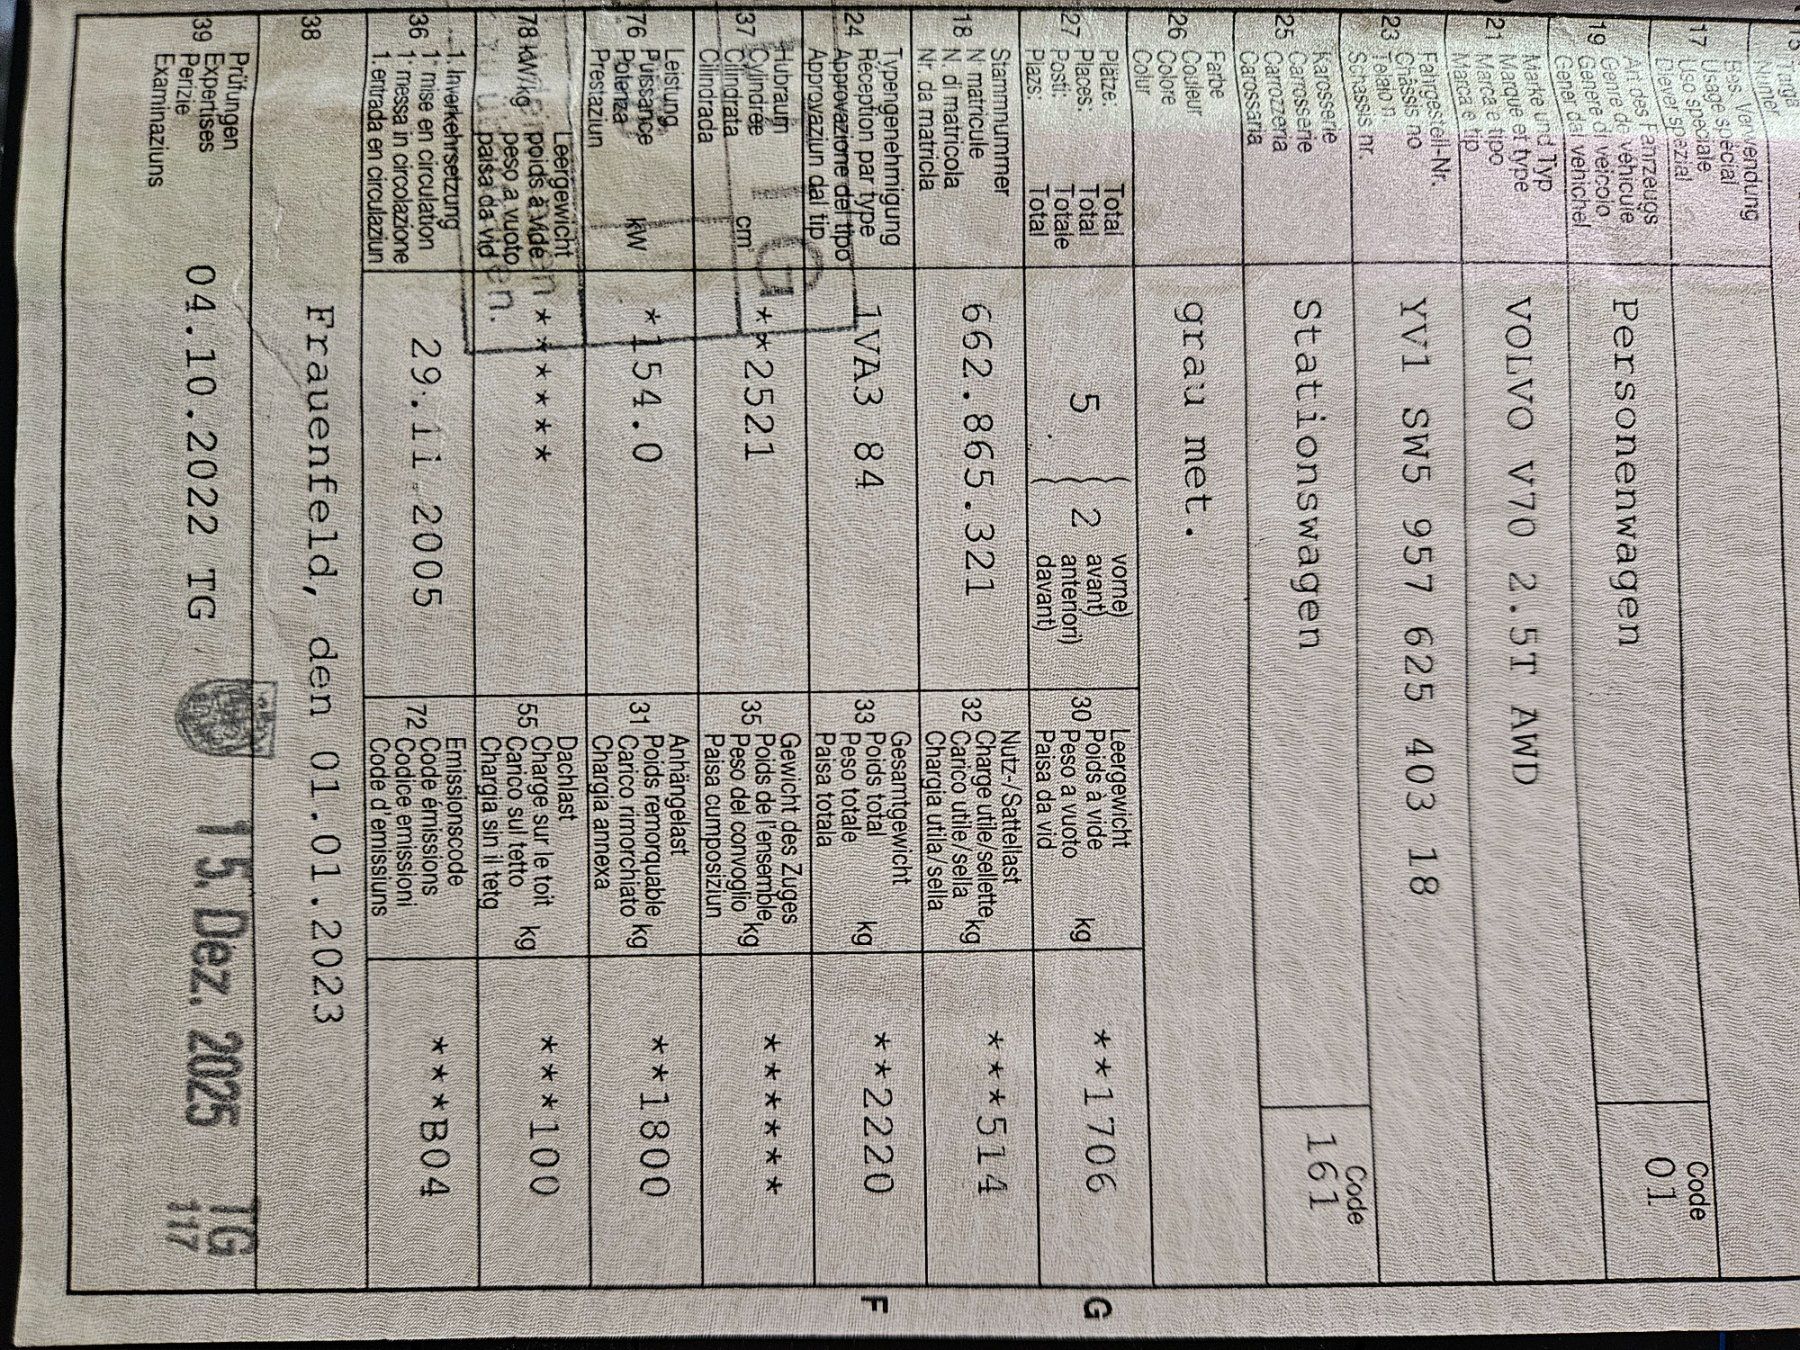 Bes. Verwendung
17 Usage spécial
Uso speciale
Diever spezial
Art des Fahrzeugs
19 Genre de véhicule
Genere di veicolo
Gener da vehichel
Personenwagen
Code
01
Marke und Typ
21 Marque et type
Marca e tipo
Marca e tip
VOLVO V70 2.5T AWD
Fahrgestell-Nr.
23 Châssis no
Telaio n
Schassis nr.
YV1 SW5 957 625 403 18
Karosserie
25 Carrosserie
Carrozzeria
Carossaria
Stationswagen
Code
161
Farbe
26 Couleur
Colore
Colur
grau met.
Plätze: Total
27 Places: Total
Posti: Totale
Plazs: Total
5 ( 2 vorne)
avant)
anteriori)
davant)
Leergewicht
30 Poids à vide
Peso a vuoto kg
Paisa da vid
**1706
G
Stammnummer
18 N matricule
N di matricola
Nr. da matricla
662.865.321
Nutz-/Sattellast
32 Charge utile/sellette
Carico utile/sella kg
Chargia utila/sella
***514
Typengenehmigung
24 Réception par type
Approvazione del tipo
Approvaziun dal tip
1VA3 84
Gesamtgewicht
33 Poids total
Peso totale kg
Paisa totala
**2220
F
Hubraum
37 Cylindrée
Cilindrata cm³
Cilindrada
**2521
Gewicht des Zuges
35 Poids de l'ensemble
Peso del convoglio kg
Paisa cumposiziun
******
Leistung
76 Puissance
Potenza kW
Prestaziun
*154.0
Anhängelast
31 Poids remorquable
Carico rimorchiato kg
Chargia annexa
**1800
Leergewicht
78 kW/kg poids à vide
peso a vuoto
paisa da vid
******
Dachlast
55 Charge sur le toit
Carico sul tetto kg
Chargia sin il tetg
***100
1. Inverkehrsetzung
36 1ʳᵉ mise en circulation
1ª messa in circolazione
1. entrada en circulaziun
29.11.2005
Emissionscode
72 Code émissions
Codice emissioni
Code d'emissiuns
***B04
38
Frauenfeld, den 01.01.2023
Prüfungen
39 Expertises
Perizie
Examinaziuns
04.10.2022 TG
15. Dez. 2025
TG
117